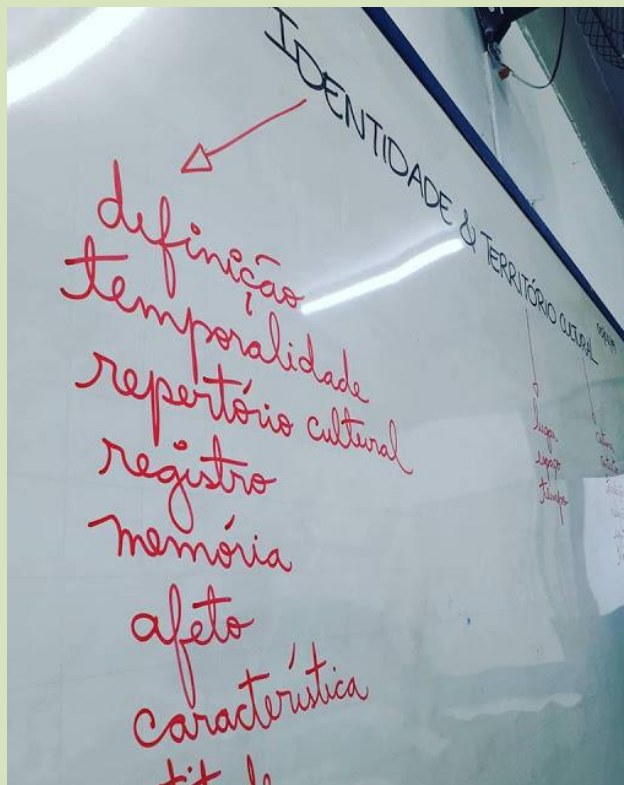 IDENTIDADE & TERRITÓRIO CULTURAL
definição
temporalidade
repertório cultural
registro
memória
afeto
característica
lugar
espaço
tempo